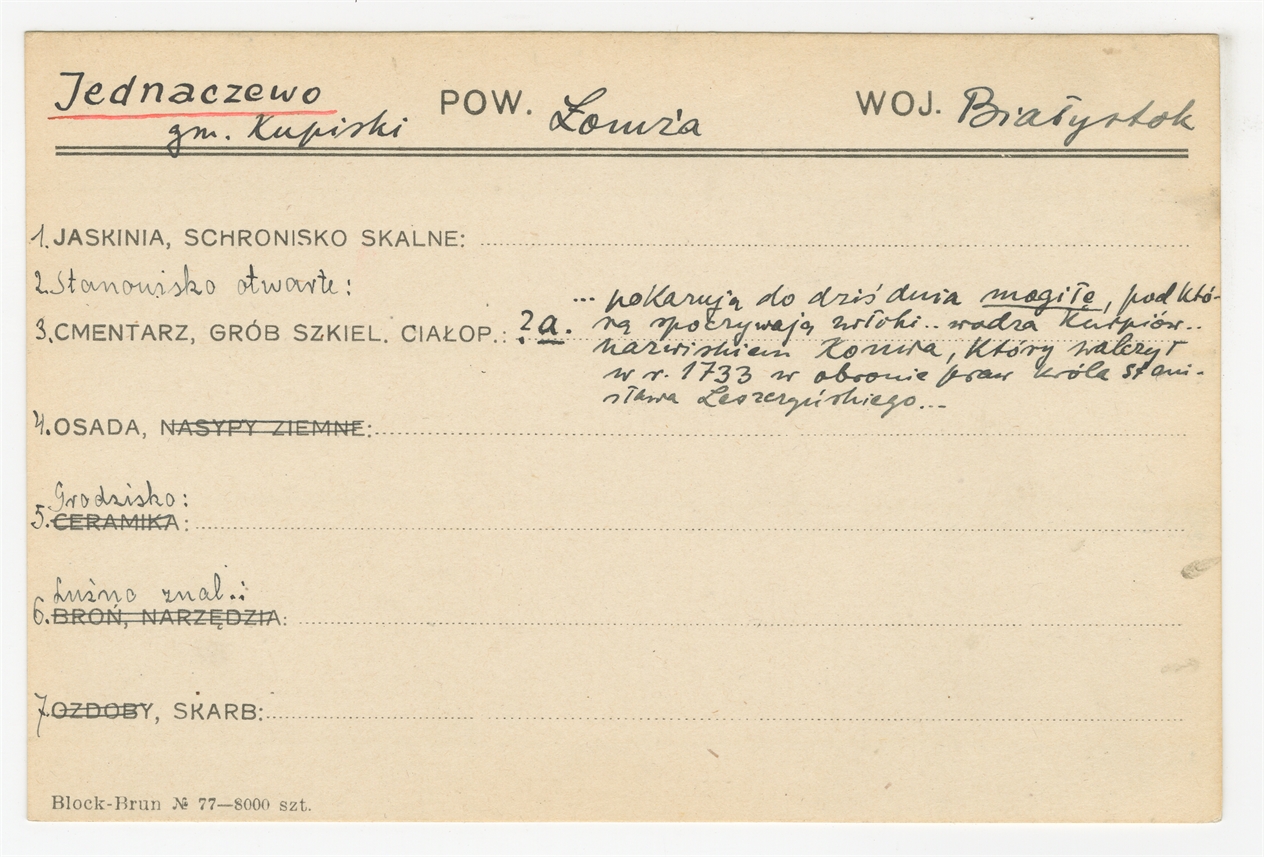 Jednaczewo POW. Łomża WOJ. Białystok
gm. Kupiski
1. JASKINIA, SCHRONISKO SKALNE:
2. Stanowisko otwarte:
... pokazują do dziś dnia mogiłę, pod któ-
3. CMENTARZ, GRÓB SZKIEL. CIAŁOP.: ? a. rą spoczywają zwłoki.. wodza Kurpiów..
nazwiskiem Konwa, który walczył
w r. 1733 w obronie praw króla Stani-
sława Leszczyńskiego...
4. OSADA, NASYPY ZIEMNE:
Grodzisko:
5. CERAMIKA:
Luźne znal.:
6. BROŃ, NARZĘDZIA:
7. OZDOBY, SKARB:
Block-Brun № 77—8000 szt.